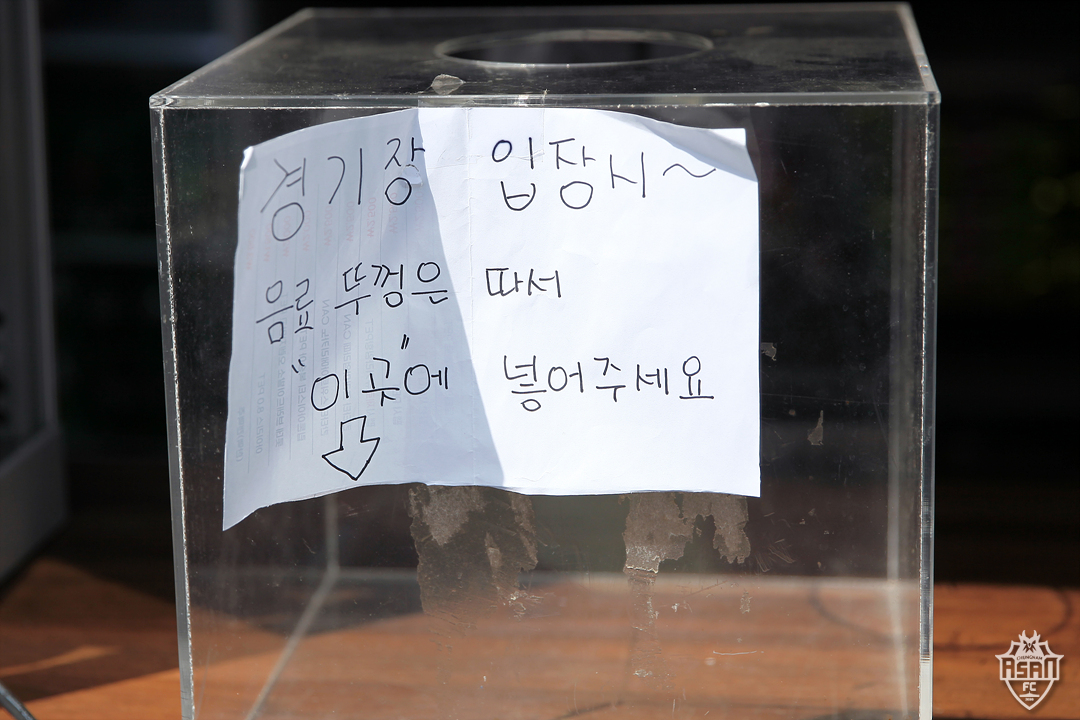 경기장 입장시~
음료 뚜껑은 따서
"이곳"에 넣어주세요
CHUNGNAM
ASAN
FC